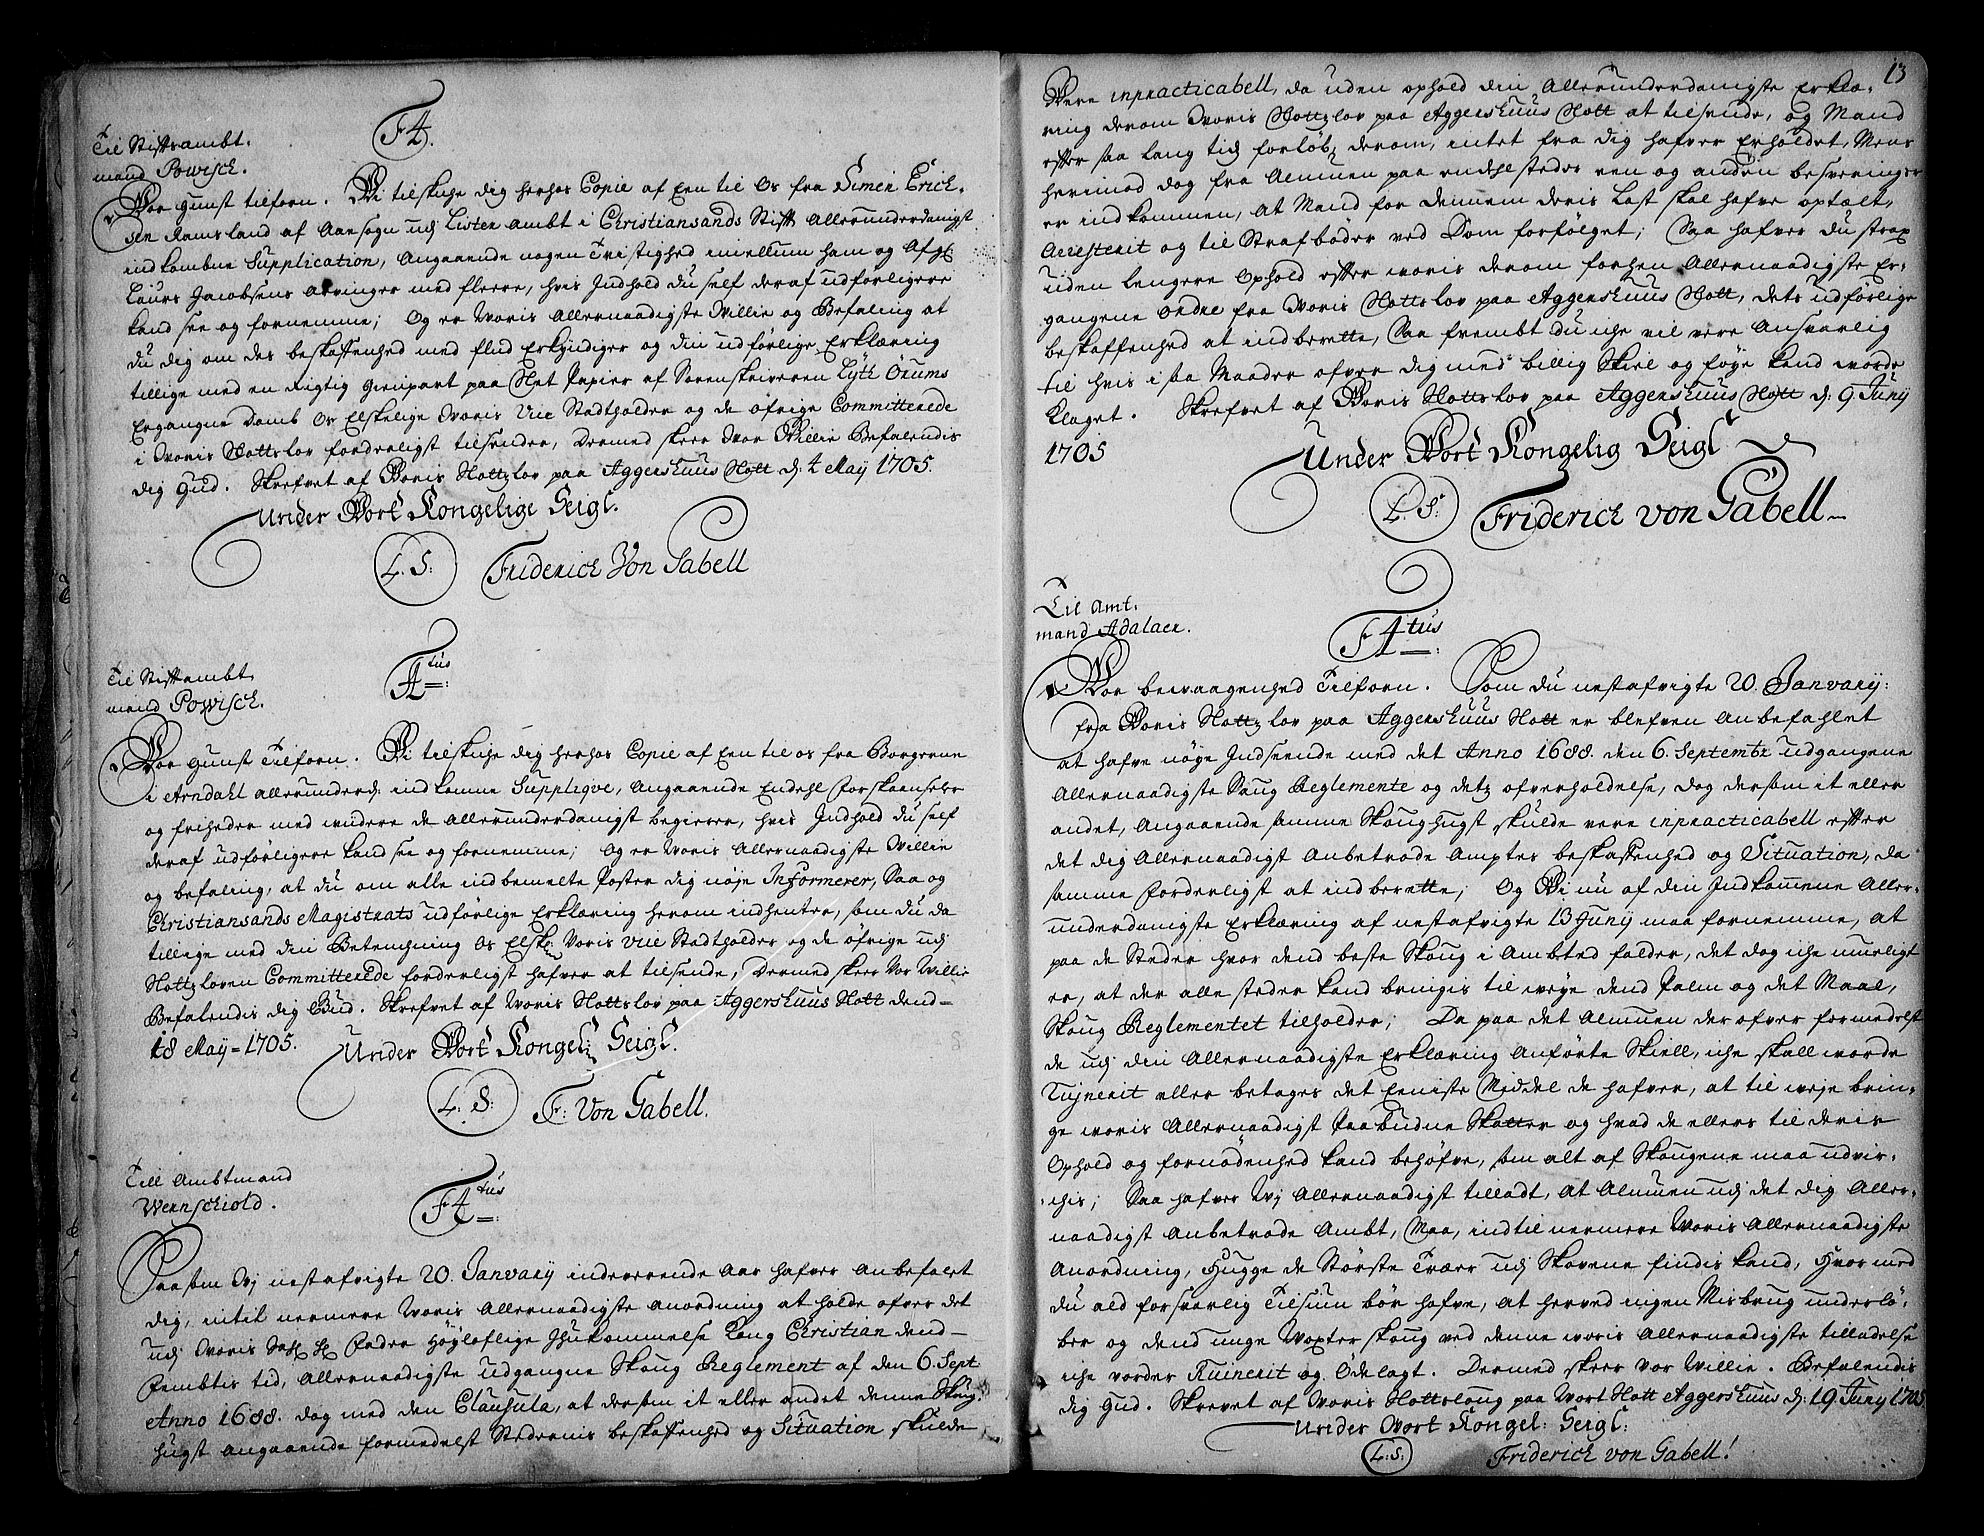 F4.
Til Stiftsambt-
mand Powisch.
Vor gunst tilforn. Wi tilskicke dig herhos Copie af Een til Os fra Simen Erich-
sen Ramsland af Aansogn udj Lister ambt i Christiansands Stift Allerunderdanigst
indkombne Supplication, Angaaende nogen Tvistighed imellum ham og Afg:
Laurs Jacobsens Arvinger med fleere, hvis Indhold du self deraf udførligere
kand see og fornemme; Og er Woris Allernaadigste Willie og Befaling at
du dig om des beskaffenhed med fliid Erkyndiger og din udførlige Erklæring
tillige med en Rigtig gienpart paa Slet Papier af Sorenskriveren Lytk Orums
Ergangne Domb Os Elskelige Woris Vice Stadtholder og de øfrige Committerede
i Woris Slottslov forderligst tilsender, Dermed skeer Vor Willie Befalendis
dig Gud. Skrefvet af Woris Slottzlov paa Aggershuus Slott d: 4 May 1705.
Under Wort Kongelige Seigl.
L. S: Friderich Von Gabell
F4tus
Til Stiftambt
mand Powisch.
Vor gunst Tilforn. Wi tilskicke dig herhos Copie af Een til os fra Borgerne
i Arndahl allerunderd: indkomne Supplique, Angaaende Endehl
og friheder med widere de allerunderdanigst begierer, hvis Indhold du self
deraf udførligere kand see og fornemme; Og er Woris Allernaadigste Willie
og befaling, at du om alle indbemelte Poster dig nøje Informerer, Saa og
Christiansands Magistrats udførlige Erklæring herom indhenter, som du da
tillige med din Betenchning Os Elsk: Voris Vice Stadtholder og de øfrige udj
Slottzloven Committerede forderligst hafver at tilsende, Dermed skeer Vor Willie
Befalendis dig Gud. Skrefvet af Woris Slottslov paa Aggershuus Slott dend-
18 May=1705.
Under Wort Kongel: Seigl.
L: S: F: Von Gabell.
Till Ambtmand
Wernschiold.
F4tus
Saasom Wj nestafvigte 20. Janvary indeverende Aar hafver Anbefalet
dig, intil nermere Woris Allernaadigste anordning at holde ofver det
udj Woris Fader Høyloflige Ihukommelse Kong Christian dend-
Fembtis tid, Allernaadigste udgangne Skoug Reglement af den 6. Sept
Anno 1688. dog med den Clausula, at dersom it eller andet denne Skoug-
hugst angaaende formedelst Stedernis beskaffenhed og Situation skulde
13
Vere inpracticabell, da uden ophold din Allerunderdanigste Erklæ-
ring derom Woris Slottzlov paa Aggershuus Slott at tilsende, og Mand
efter saa lang tid forløb, derom, intet fra dig hafver Erholdet, Mens
herimod dog fra Almuen paa endehl steder een og anden besveringer
er indkommen, At Mand for dennem deris Last skal hafve optælt,
Arresterit og til Strafbøder ved Dom forfølget; Saa hafver du strax
uden lengere Ophold efter woris derom forhen Allernaadigste Er-
gangene Ordre fra Woris Slottslov paa Aggershuus Slott, dets udførlige
beskaffenhed at indberette, Saa frembt du iche vil vere Ansvarlig
til hvis i saa Maader ofver dig med billig Skiel og føye kand worde
klaget. Skrefvet af Woris Slottslov paa Aggershuus Slott d: 9 Juny
1705
Under Wort Kongelig Seigl
L. S: Friderich von Gabell
Til Amt-
mand Adalaer.
F4tus
Vor bewaagenhed Tilforn. Som du nestafvigte 20. Janvary:
fra Woris Slottzlov paa Aggershuus Slott er blefven Anbefahlet
at hafve nøye Indseende med det Anno 1688. den 6. Septembr udgangene
Allernaadigste Skoug Reglemente og detz ofverholdelse, dog dersom it eller
andet, Angaaende samme Skoughugst skulde vere inpracticabell efter
det dig Allernaadigst Anbetrode Ampter beskaffenhed og Situation, da
samme forderligst at indberette; Og Wi nu af din Indkommene Aller-
underdanigste Erklæring af nestafvigte 13 Juny maa fornemme, at
paa de Steder hvor dend beste Skoug i Ambted falder, det dog iche mueligt
er, at der alle steder kand bringis til weye dend Palm og det Maal,
Skoug Reglementet tilholder; Da paa det Almuen der ofver formedelst
de udj din Allernaadigste Erklæring Anførte Skiell, iche skall worde
Rujnerit eller betages det Eeniste Middel de hafver, at til weje brin-
ge woris Allernaadigst Paabudne Skatter og hvad de ellers til deris
Ophold og fornødenhed kand behøfve, som alt af Skougene maa udvir-
chis; Saa hafver Wj Allernaadigst tilladt, At Almuen udj det dig Aller-
naadigst Anbetrode Ambt, Maa, indtil nermere Woris Allernaadigste
Anordning, Hugge de Største Træer udj Skovene findis kand, Hvormed
du ald forsvarlig Tilsiun bør hafve, at herved ingen Misbrug underlø-
ber og dend unge Voxter skoug ved denne woris Allernaadigste tilladelse
iche vorder Ruinerit og Ødelagt. Dermed skeer vor Willie. Befalendis
dig Gud. Skrevet af Woris Slottsloug paa Wort Slott Aggershuus d: 19 Juny 1705
Under Wort Kongel: Seigl:
L: S: Friderich von Gabell!